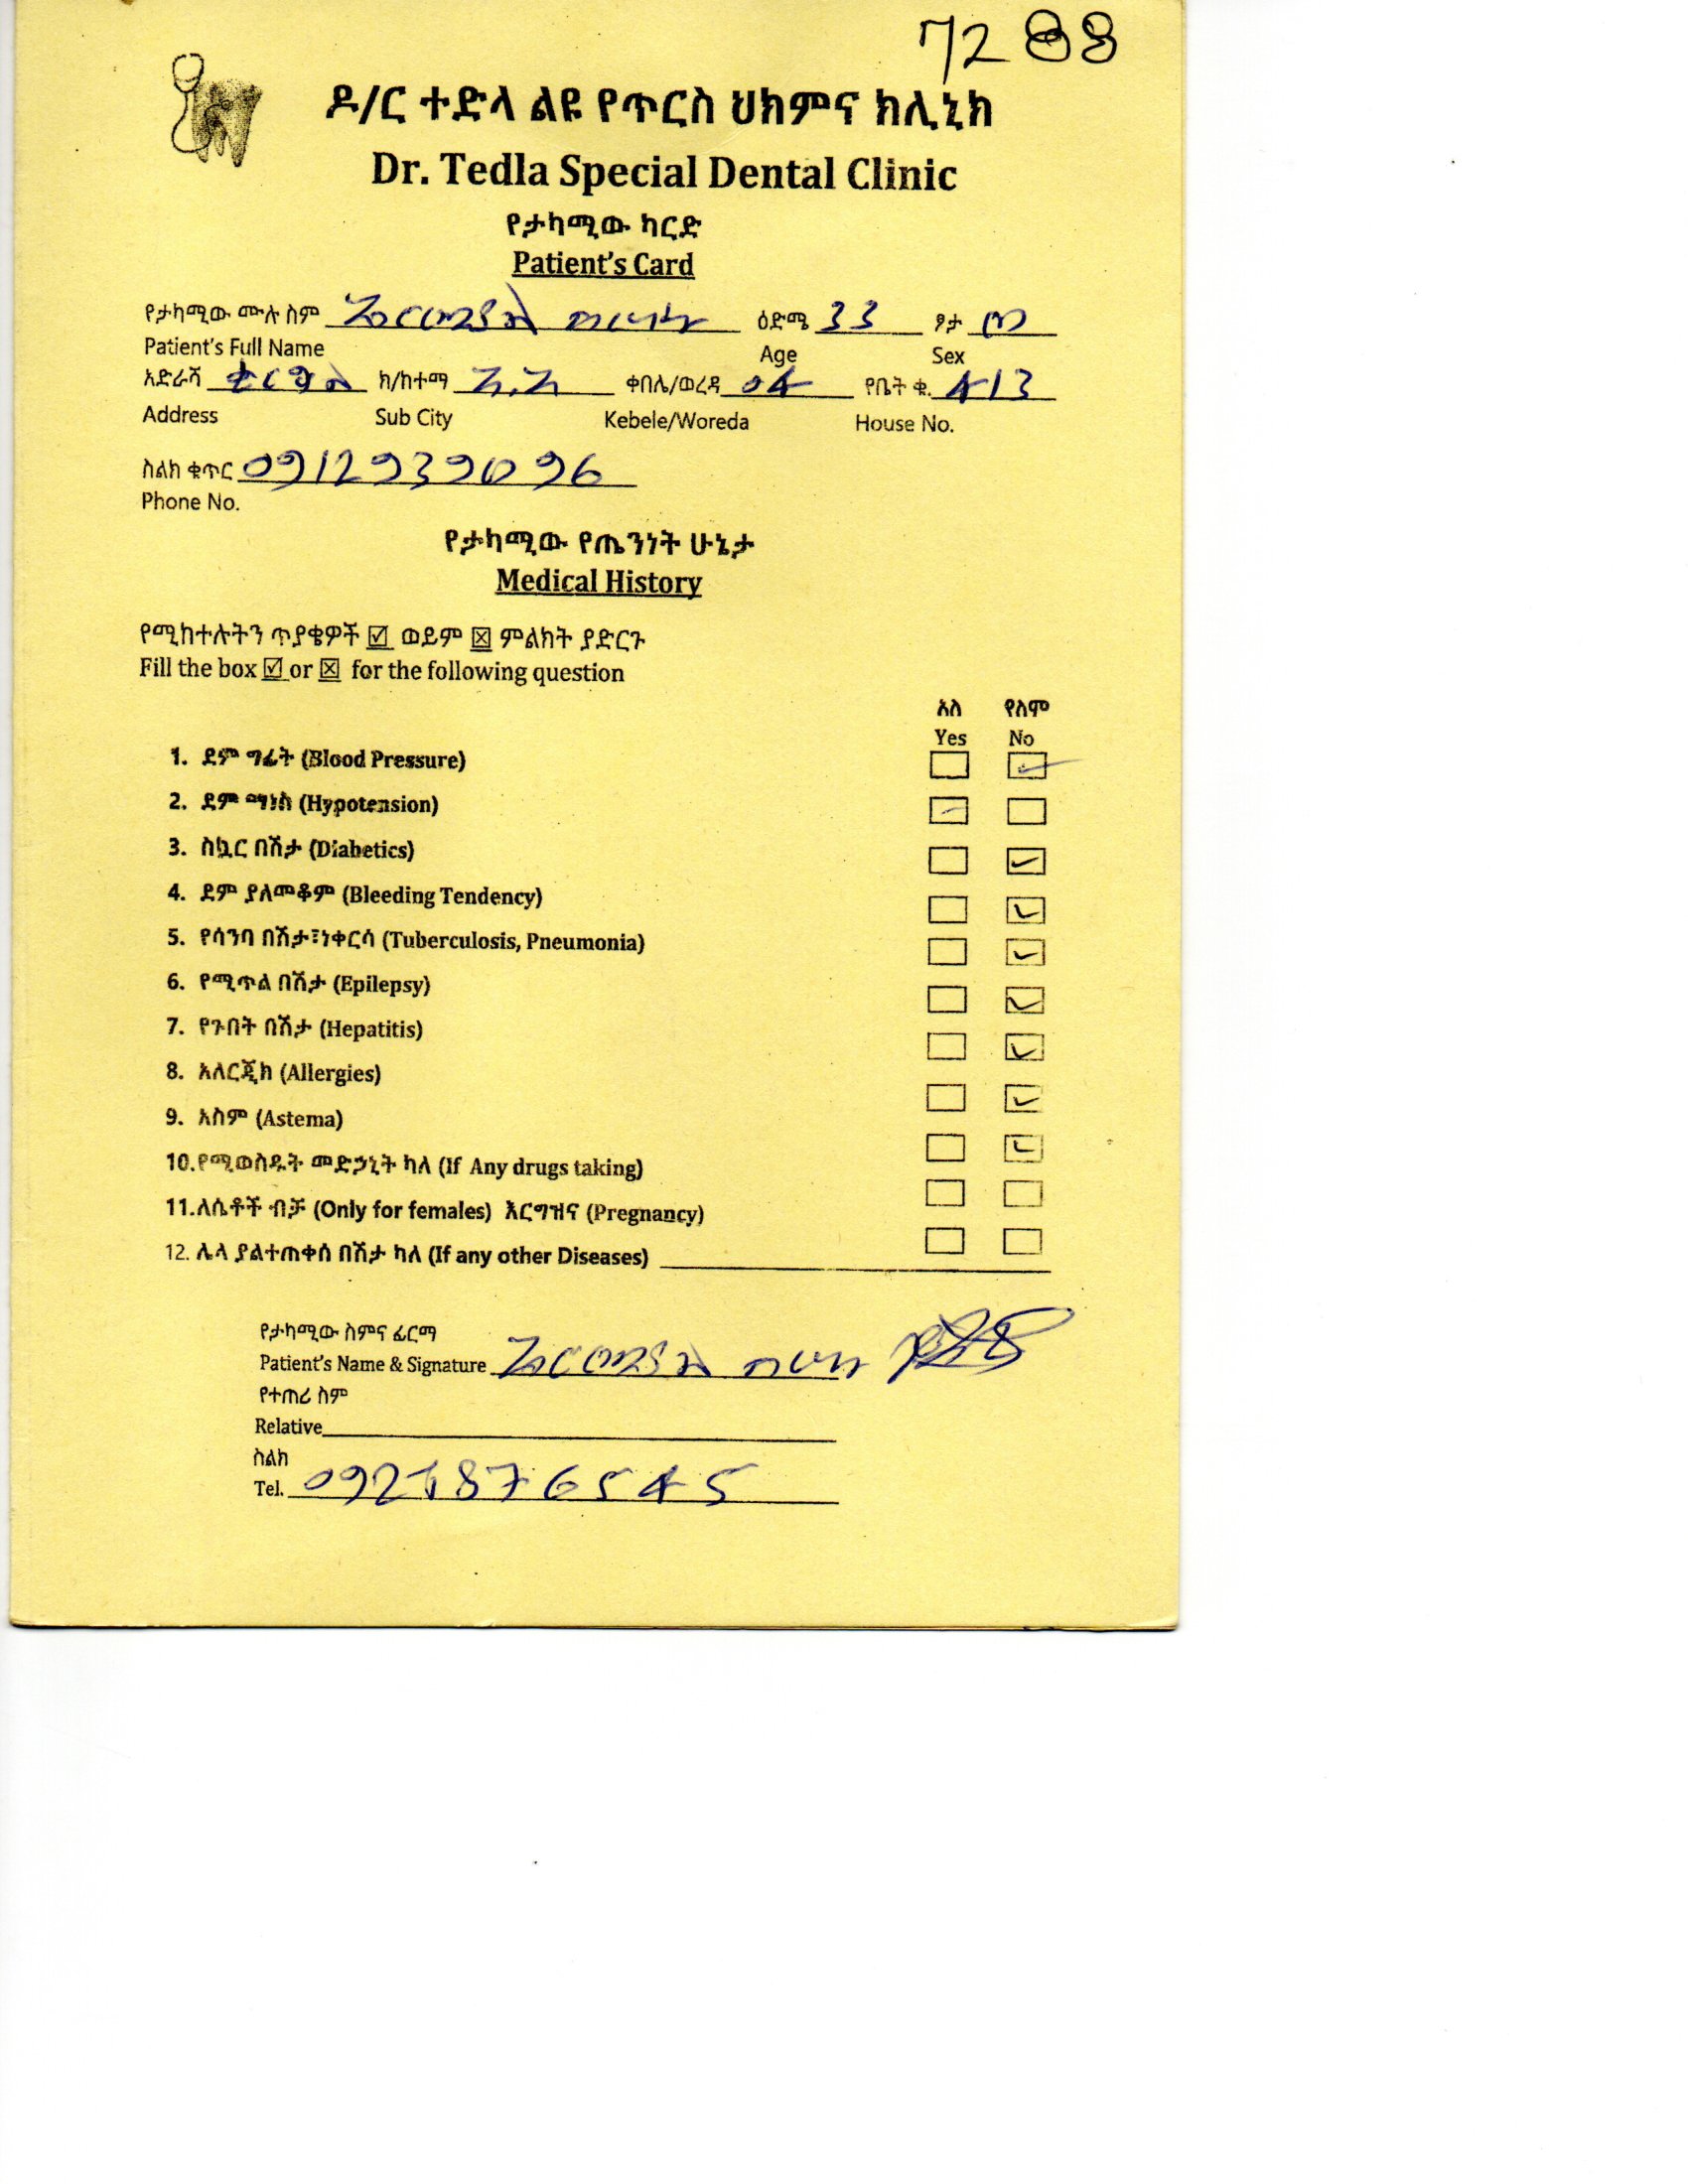 7288
ዶ/ር ተድላ ልዩ የጥርስ ህክምና ክሊኒክ
Dr. Tedla Special Dental Clinic
የታካሚው ካርድ
Patient's Card
የታካሚው ሙሉ ስም ዕድሜ 33 ፆታ
Patient's Full Name Age Sex
አድራሻ ክ/ከተማ ቀበሌ/ወረዳ 04 የቤት ቁ. 413
Address Sub City Kebele/Woreda House No.
ስልክ ቁጥር
Phone No.
የታካሚው የጤንነት ሁኔታ
Medical History
የሚከተሉትን ጥያቄዎች ☑ ወይም ☒ ምልክት ያድርጉ
Fill the box ☑ or ☒ for the following question
አለ የለም
Yes No
1. ደም ግፊት (Blood Pressure)
2. ደም ማነስ (Hypotension)
3. ስኳር በሽታ (Diabetics)
4. ደም ያለመቆም (Bleeding Tendency)
5. የሳንባ በሽታ፣ነቀርሳ (Tuberculosis, Pneumonia)
6. የሚጥል በሽታ (Epilepsy)
7. የጉበት በሽታ (Hepatitis)
8. አለርጂክ (Allergies)
9. አስም (Astema)
10.የሚወስዱት መድኃኒት ካለ (If Any drugs taking)
11.ለሴቶች ብቻ (Only for females) እርግዝና (Pregnancy)
12. ሌላ ያልተጠቀሰ በሽታ ካለ (If any other Diseases)
የታካሚው ስምና ፊርማ
Patient's Name & Signature
የተጠሪ ስም
Relative
ስልክ
Tel.